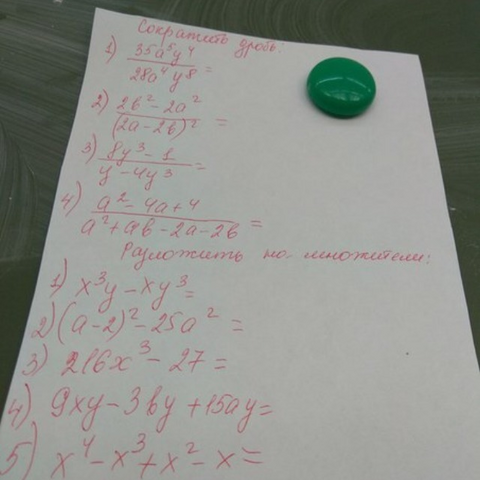 Сократить дробь:
1) 35a⁵y⁴ / 28a⁴y8 =
2) 2b² - 2a² / (2a - 2b)² =
3) 8y³ - 1 / y - 4y³ =
4) a² - 4a + 4 / a² + ab - 2a - 2b =
Разложить на множители:
1) x³y - xy³ =
2) (a - 2)² - 25a² =
3) 216x³ - 27 =
4) 9xy - 3by + 15ay =
5) x⁴ - x³ + x² - x =